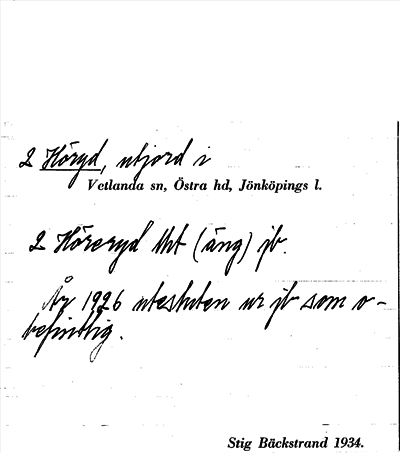 2 Höryd, utjord i
Vetlanda sn, Östra hd, Jönköpings l.
2 Höreryd Utt (äng) jb.
År 1926 utesluten ur jb som o-
befintlig.
Stig Bäckstrand 1934.